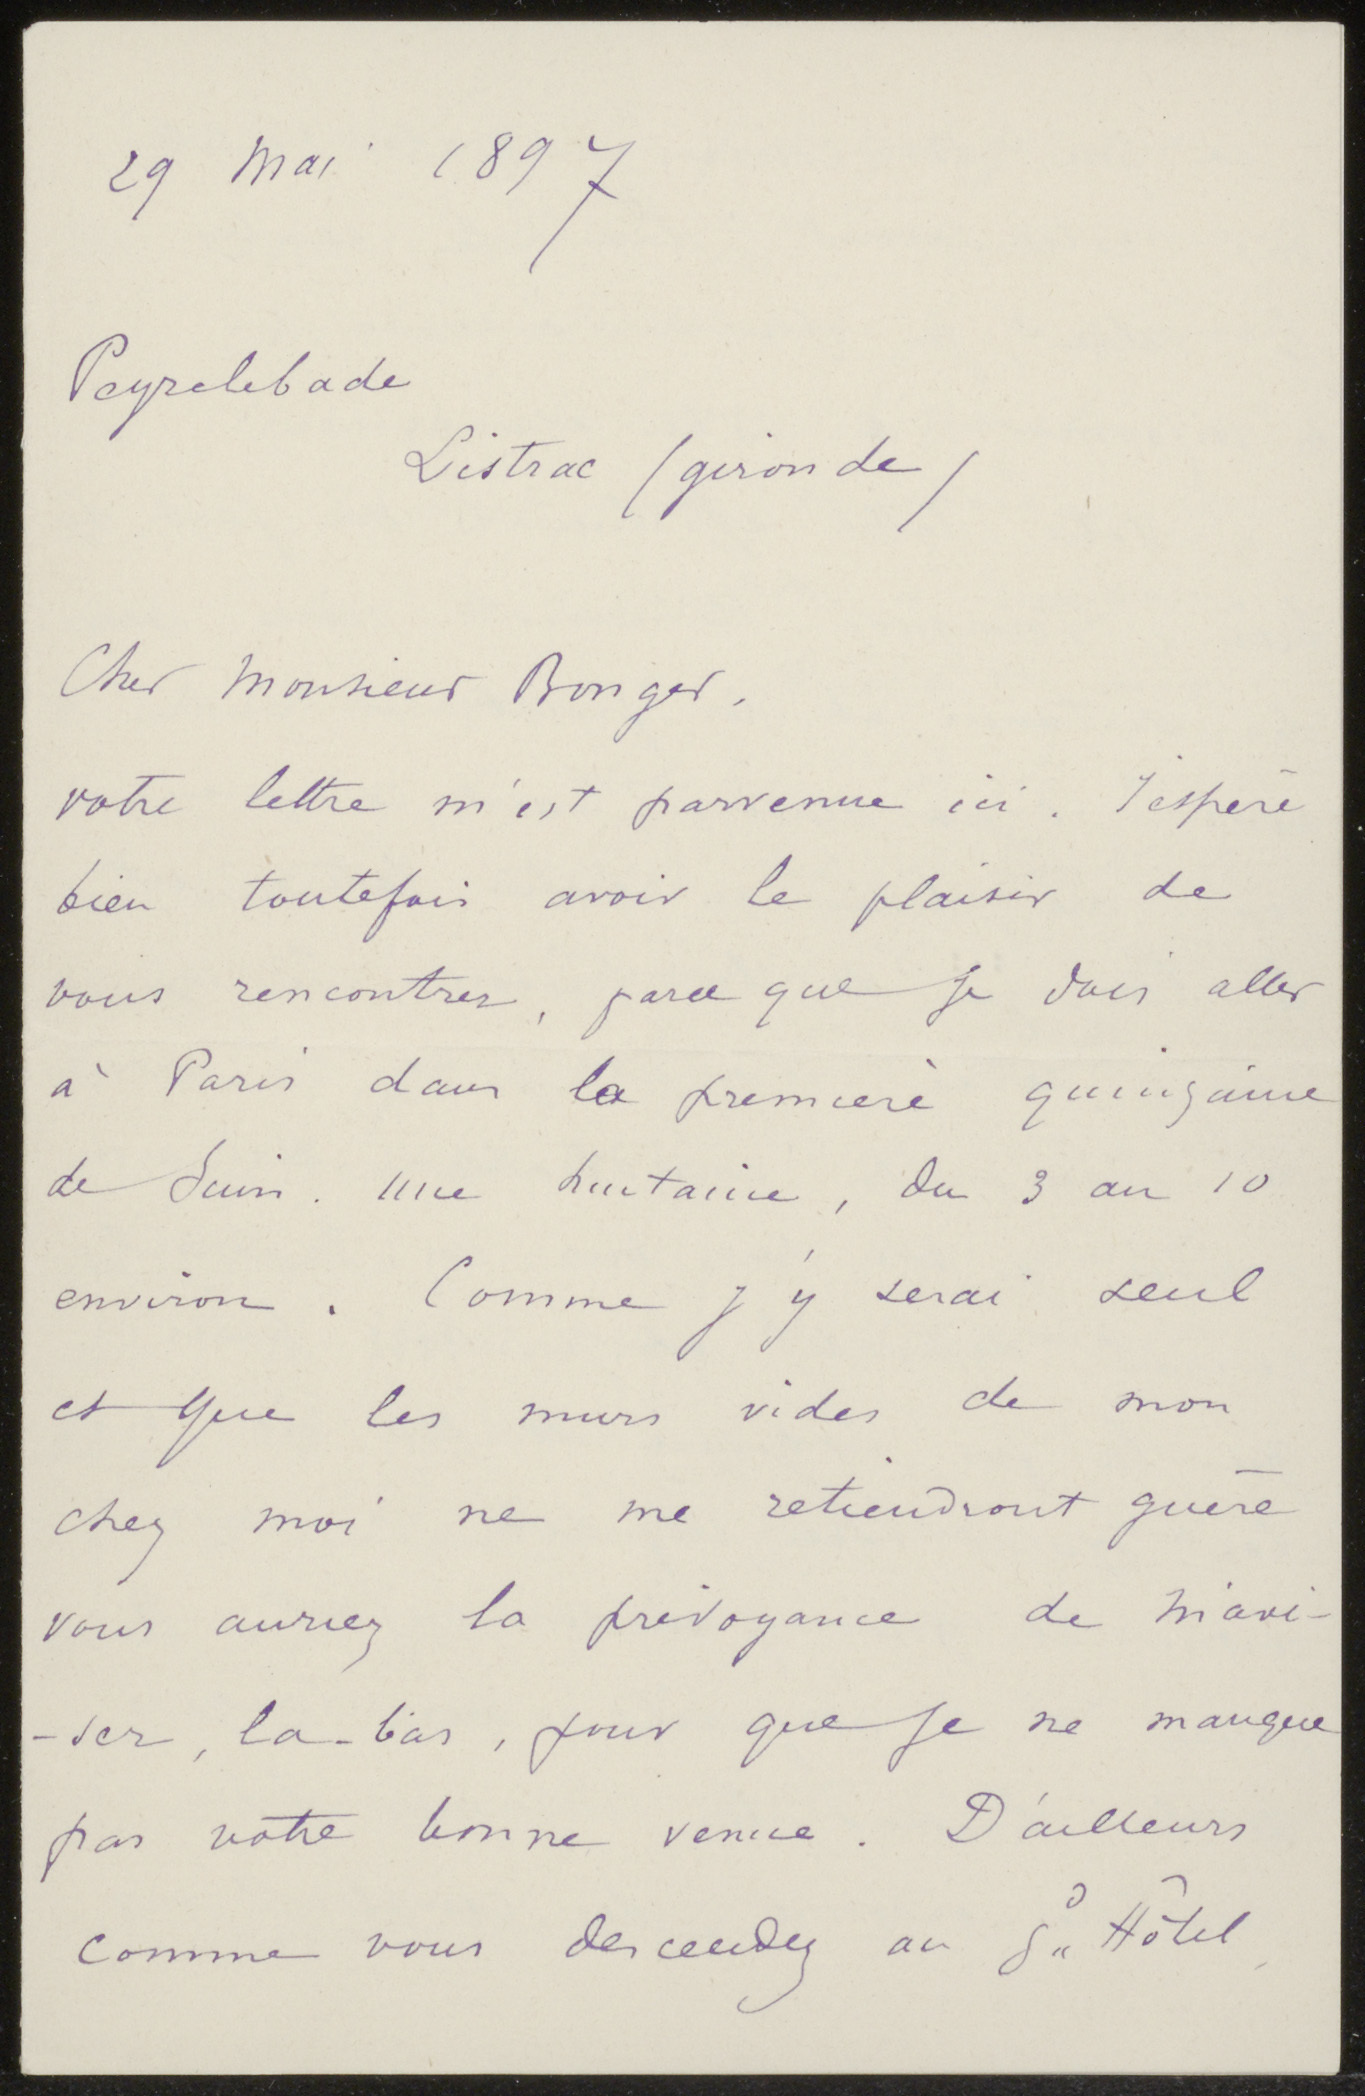 29 Mai 1897
Peyrelebade
Listrac (gironde)
Cher Monsieur Bonger.
votre lettre m'est parvenue ici. J'espère
bien toutefois avoir le plaisir de
vous rencontrer, parce que je dois aller
à Paris dans la première quinzaine
de Juin. une huitaine, du 3 au 10
environ. Comme j'y serai seul
et que les murs vides de mon
chez moi ne me retiendront guère
vous auriez la prévoyance de m'avi-
-ser, la-bas, pour que je ne manque
pas votre bonne venue. D'ailleurs
comme vous descendez au Gd Hôtel,